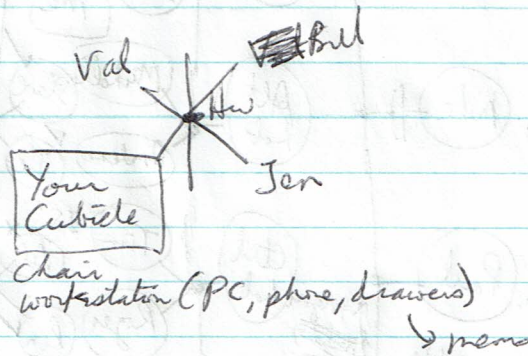 Val
Bill
Jen
Your
Cubicle
chair
workstation (PC, phone, drawers)